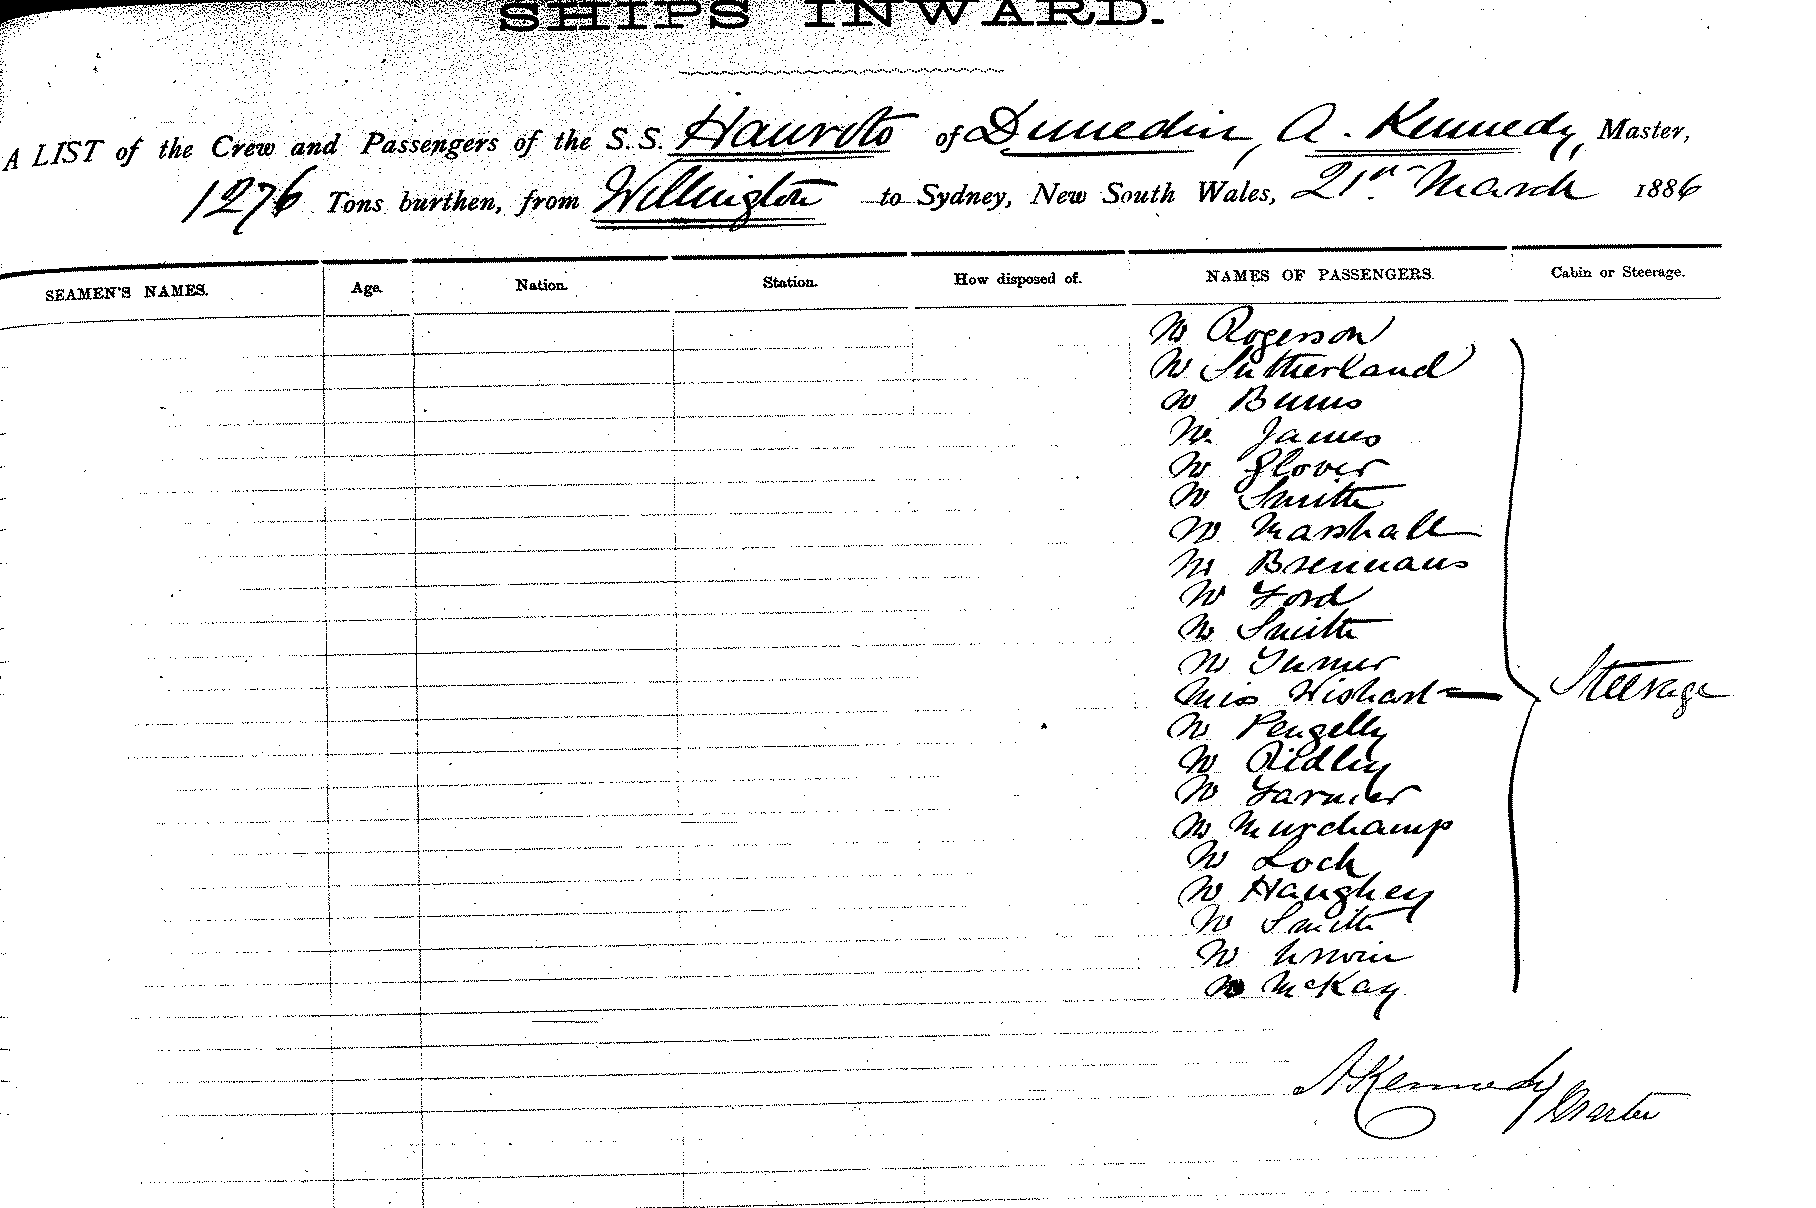 SHIPS INWARD.
A LIST of the Crew and Passengers of the S.S. Hauroto of Dunedin, A. Kennedy, Master,
1276 Tons burthen, from Wellington to Sydney, New South Wales, 21st March 1886
SEAMEN'S NAMES. Age. Nation. Station. How disposed of. NAMES OF PASSENGERS. Cabin or Steerage.
Mr Rogerson
Mr Sutherland
Mr Burns
Mr James
Mr Glover
Mr Smith
Mr Marshall
Mr Brennans
Mr Ford
Mr Smith
Mr Turner
Miss Wishart Steerage
Mr Pengelly
Mr Ridley
Mr Farmer
Mr Murchamp
Mr Lock
Mr Haughey
Mr Smith
Mr Irwin
Mr McKay
A Kennedy Master